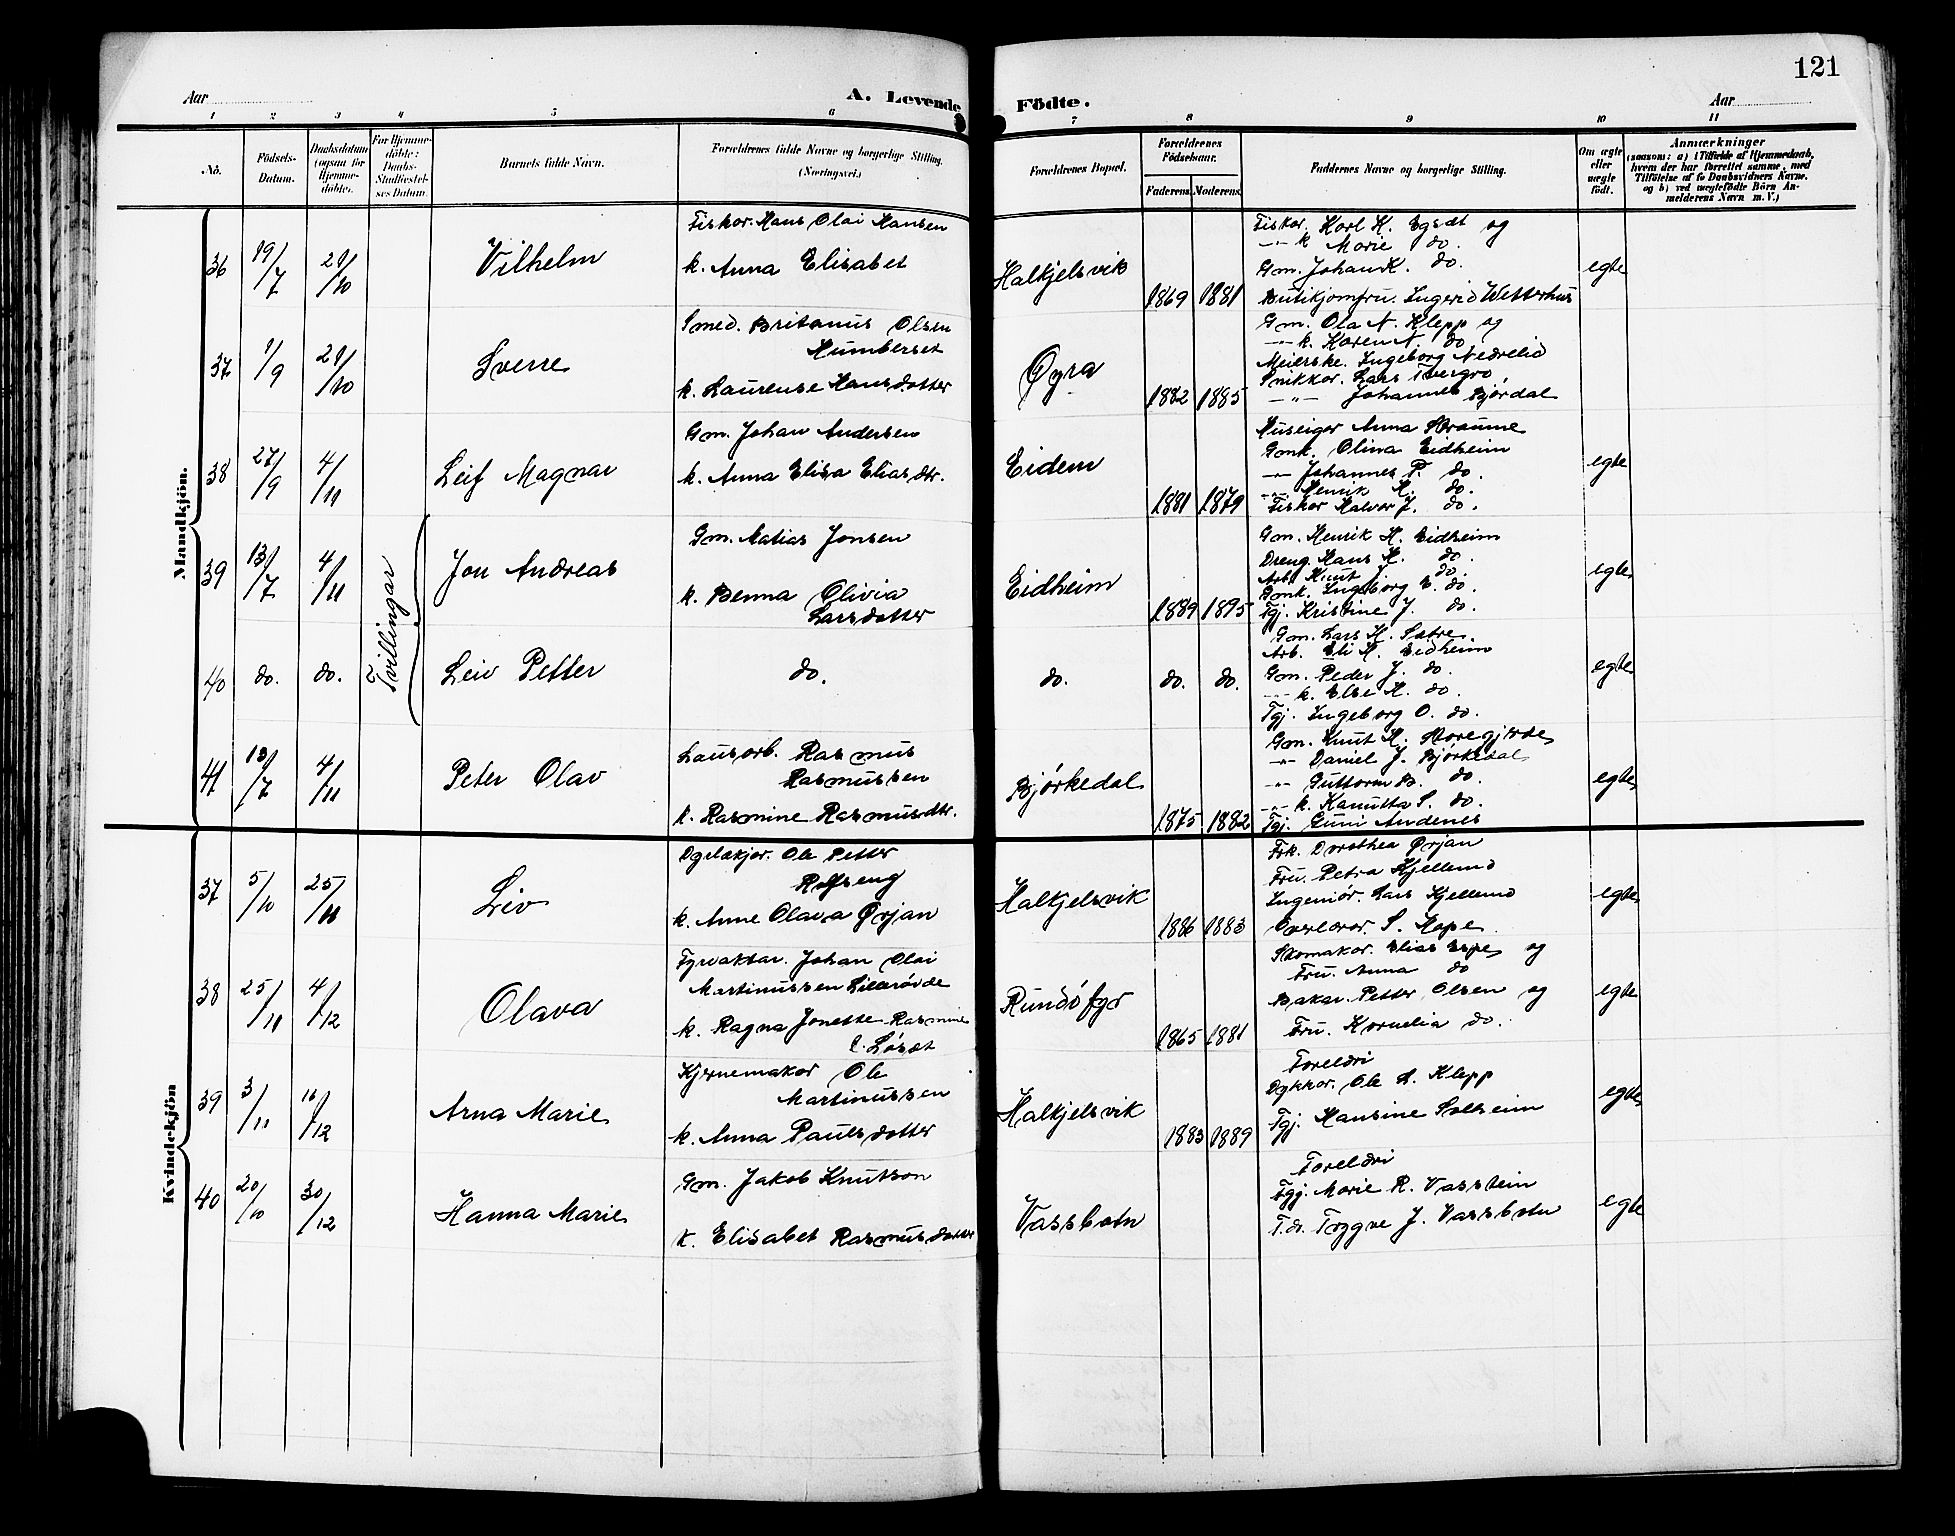 121
Aar
A. Levende Födte.
Aar
1 2 3 4 5 6 7 8 9 10 11
No.
Födsels-Datum.
Daabsdatum (ogsaa for Hjemme-döbte).
For Hjemme-döbte: Daabs-Stadfæstelses Datum.
Barnets fulde Navn.
Forældrenes fulde Navne og borgerlige Stilling. (Næringsvei.)
Forældrenes Bopæl.
Forældrenes Födselsaar.
Faderens. Moderens.
Faddernes Navne og borgerlige Stilling.
Om ægte eller uægte født.
Anmærkninger
(saasom: a) i Tilfælde af Hjemmedaab, hvem der har forrettet samme, med Tilföielse af to Daabsvidners Navne, og b) ved uægtefödte Börn Anmelderens Navn m. V.)
Mandkjön.
36 19/7 29/10 Vilhelm
Fiskar. Hans Olai Hansen
k. Anna Elisabet
Halkjelsvik 1869 1881
Fiskar. Karl K. Egsæt og
-"- k Marie do.
Gm. Johan K. do.
Butikjomfru. Ingerid Westerhus
egte
37 1/9 29/10 Sverre
Smed. Britanus Olsen
Humberset
k. Laurense Hansdotter
Øyra 1882 1885
Gm. Ola N. Klepp og
-"- k. Karen N. do
Meierske. Ingeborg Nedrelid
Snikkar. Lars Tvergro
-"- Johannes Bjørdal
38 27/9 4/11 Leif Magnar
Gm. Johan Andersen
k. Anna Elisa Eliasdtr.
Eidem 1881 1879
Huseigar Anna Straume
Gmk. Olina Eidheim
-"- Johannes P. do.
-"- Henrik H. do.
Fiskar Halvor J. do.
egte
39 13/7 4/11 Tvillingar Jon Andreas
Gm. Matias Jonsen
k. Benna Olivia
Larsdotter
Eidheim 1889 1895
Gm. Henrik H. Eidheim
Dreng. Hans H. do.
Arb. Knut J. do.
Gmk. Ingeborg E. do.
Tgj. Kristine J. do.
egte
40 do. do. Leiv Petter
do.
do. do. do.
Gm. Lars H. Sætre.
Arb. Eli H. Eidheim
Gm. Peder J. do.
-"- k. Else H. do.
Tgj. Ingeborg O. do.
egte
41 13/7 4/11 Peter Olav
Lausarb. Rasmus
Rasmussen
k. Rasmine Rasmusdtr.
Bjørkedal 1875 1882
Gm. Knut H. Storegjerde
-"- Daniel J. Bjørkedal
-"- Guttorm B. do.
-"- k. Kanutta S. do.
Tgj. Guni Andenes
egte
Kvindekjön
37 5/10 25/11 Liv
Ole Petter
Rolfseng
k. Anne Olava Ørjan
Halkjelsvik 1886 1883
Frk. Dorothea Ørjan
Fru. Petra Kjellund
Ingeniør. Lars Kjellund
Overlærar. S. Hope.
egte
38 25/11 4/12 Olava
Fyrvaktar. Johan Olai
Martinussen
k. Ragna Jonette Rasmine
f. Løset
Rundö fyr 1865 1881
Skomakar. Elias Espe og
Fru. Anna do
Bakar. Petter Olsen og
Fru. Kornelia do.
egte
39 3/11 16/12 Arna Marie
Kjernemakar Ole
Martinussen
k. Anna Paulsdotter
Halkjelsvik 1883 1889
Foreldri
Dykkar. Ole A. Klepp
Tgj. Hansine Solheim
egte
40 20/10 30/12 Hanna Marie
Gm. Jakob Knutson
k. Elisabet Rasmusdotter
Vassbotn
Foreldri
Tgj. Marie R. Vasstein
T.dr. Tryggve J. Vassbotn
egte